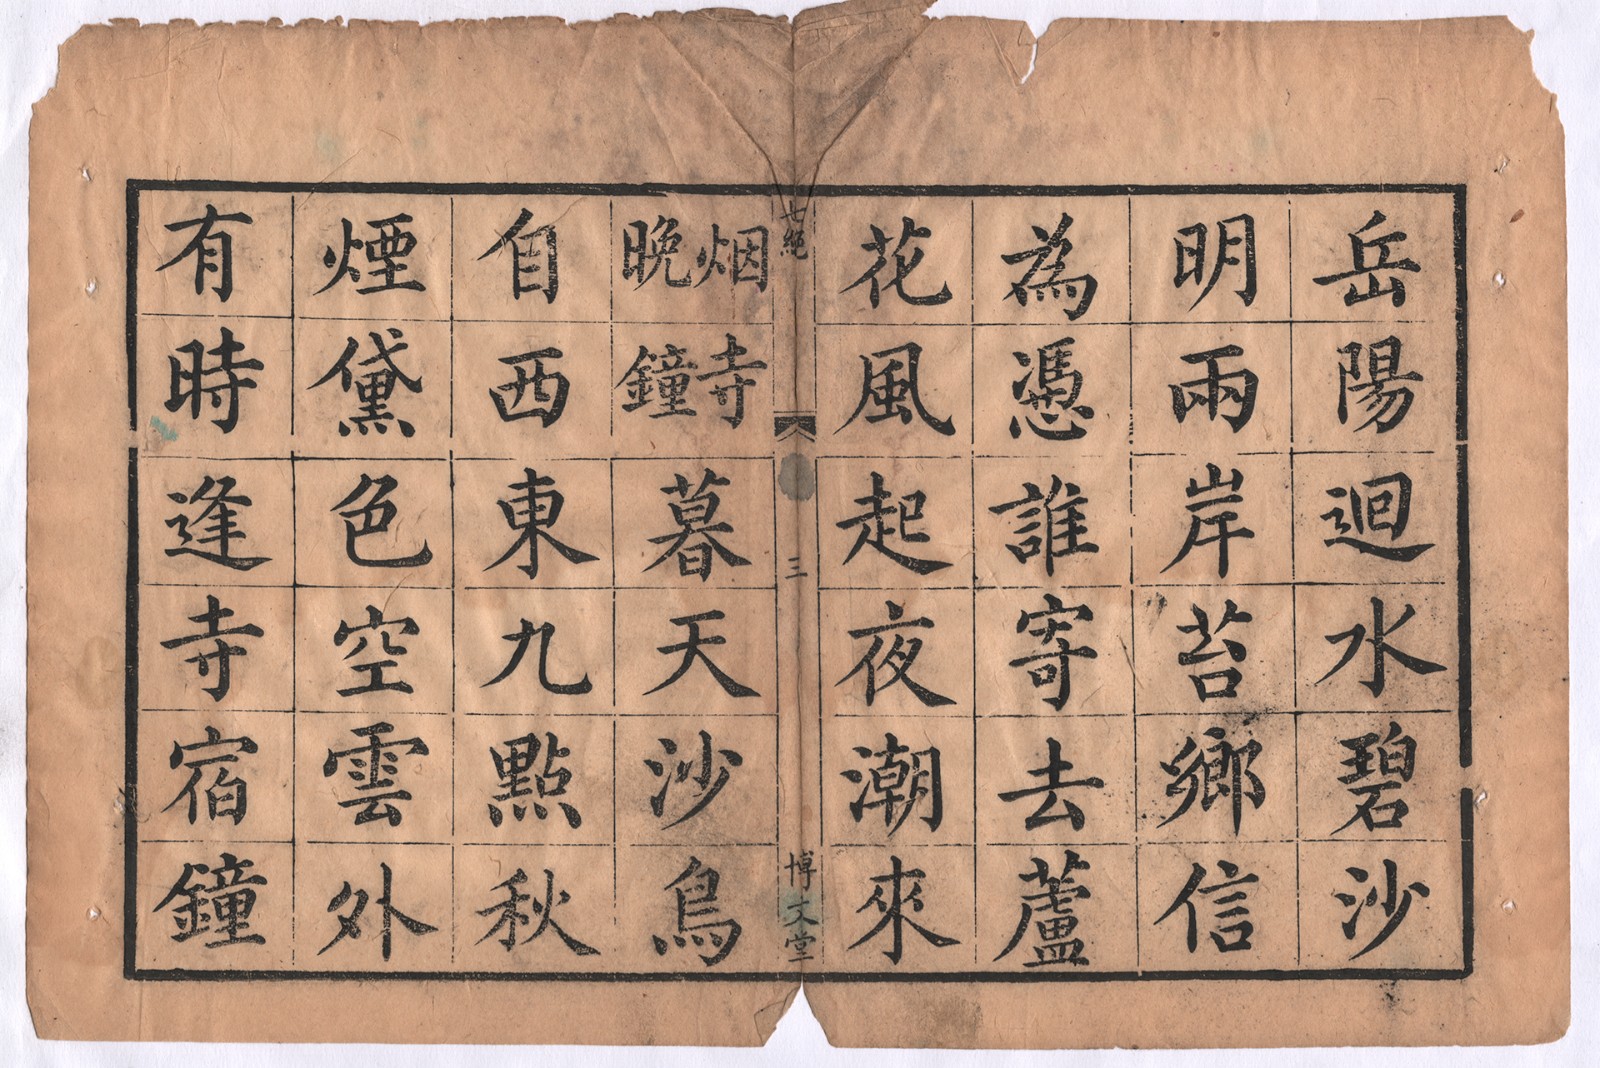 岳陽迴水碧沙
明兩岸苔鄉信
為憑誰寄去蘆
花風起夜潮來
七絕
三
博文堂
烟寺
晚鐘
暮天沙鳥
自西東九點秋
煙黛色空雲外
有時逢寺宿鐘